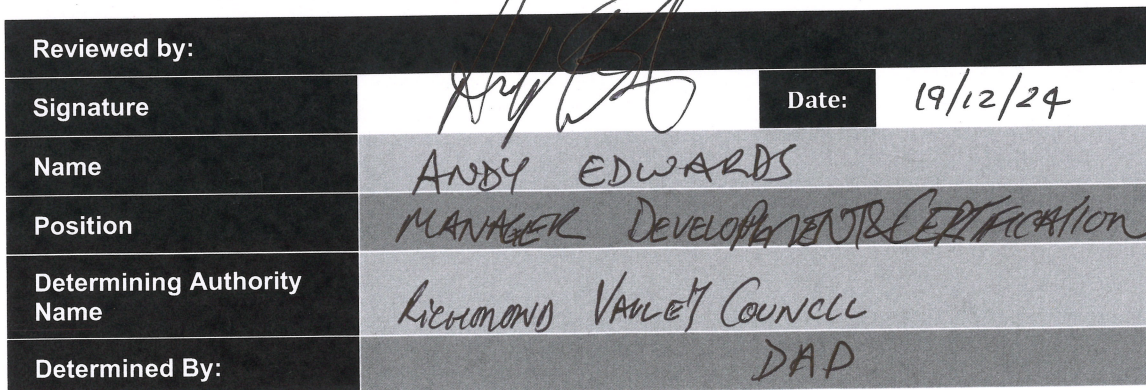 Reviewed by:
Signature Date: 19/12/24
Name ANDY EDWARDS
Position MANAGER DEVELOPMENT & CERTIFICATION
Determining Authority
Name RICHMOND VALLEY COUNCIL
Determined By: DAP